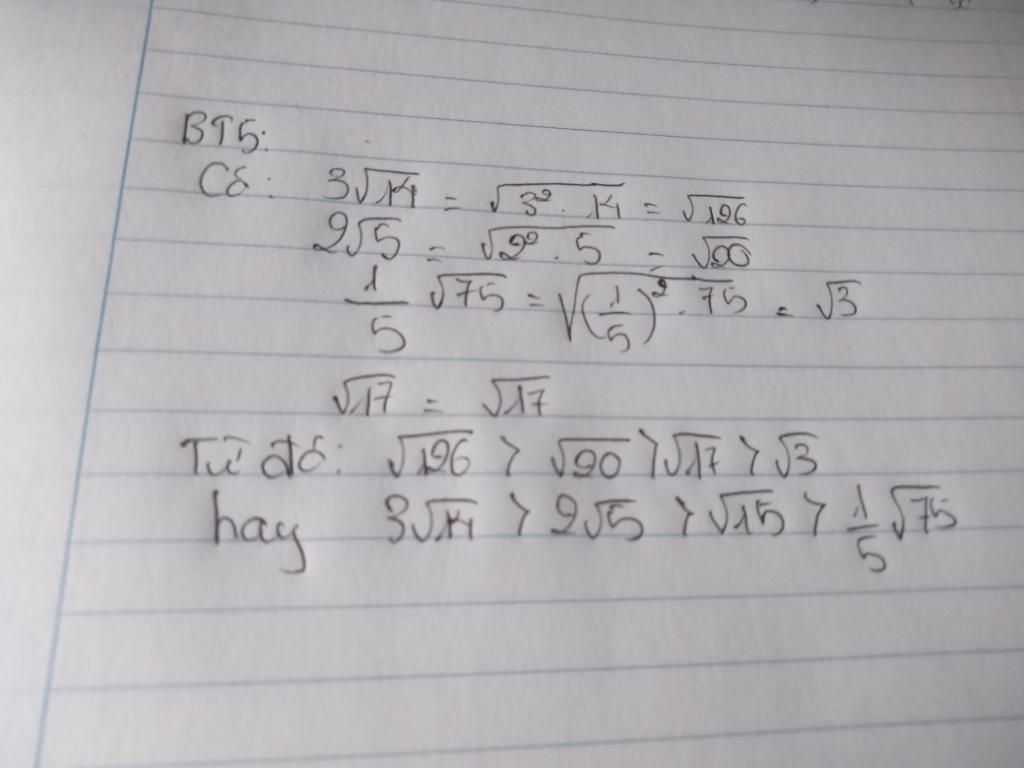 BT5:
Có: 3√14 = √(3² . 14) = √126
2√5 = √(2² . 5) = √20
1/5 √75 = √((1/5)² . 75) = √3
√17 = √17
Từ đó: √126 > √20 > √17 > √3
hay 3√14 > 2√5 > √15 > 1/5 √75